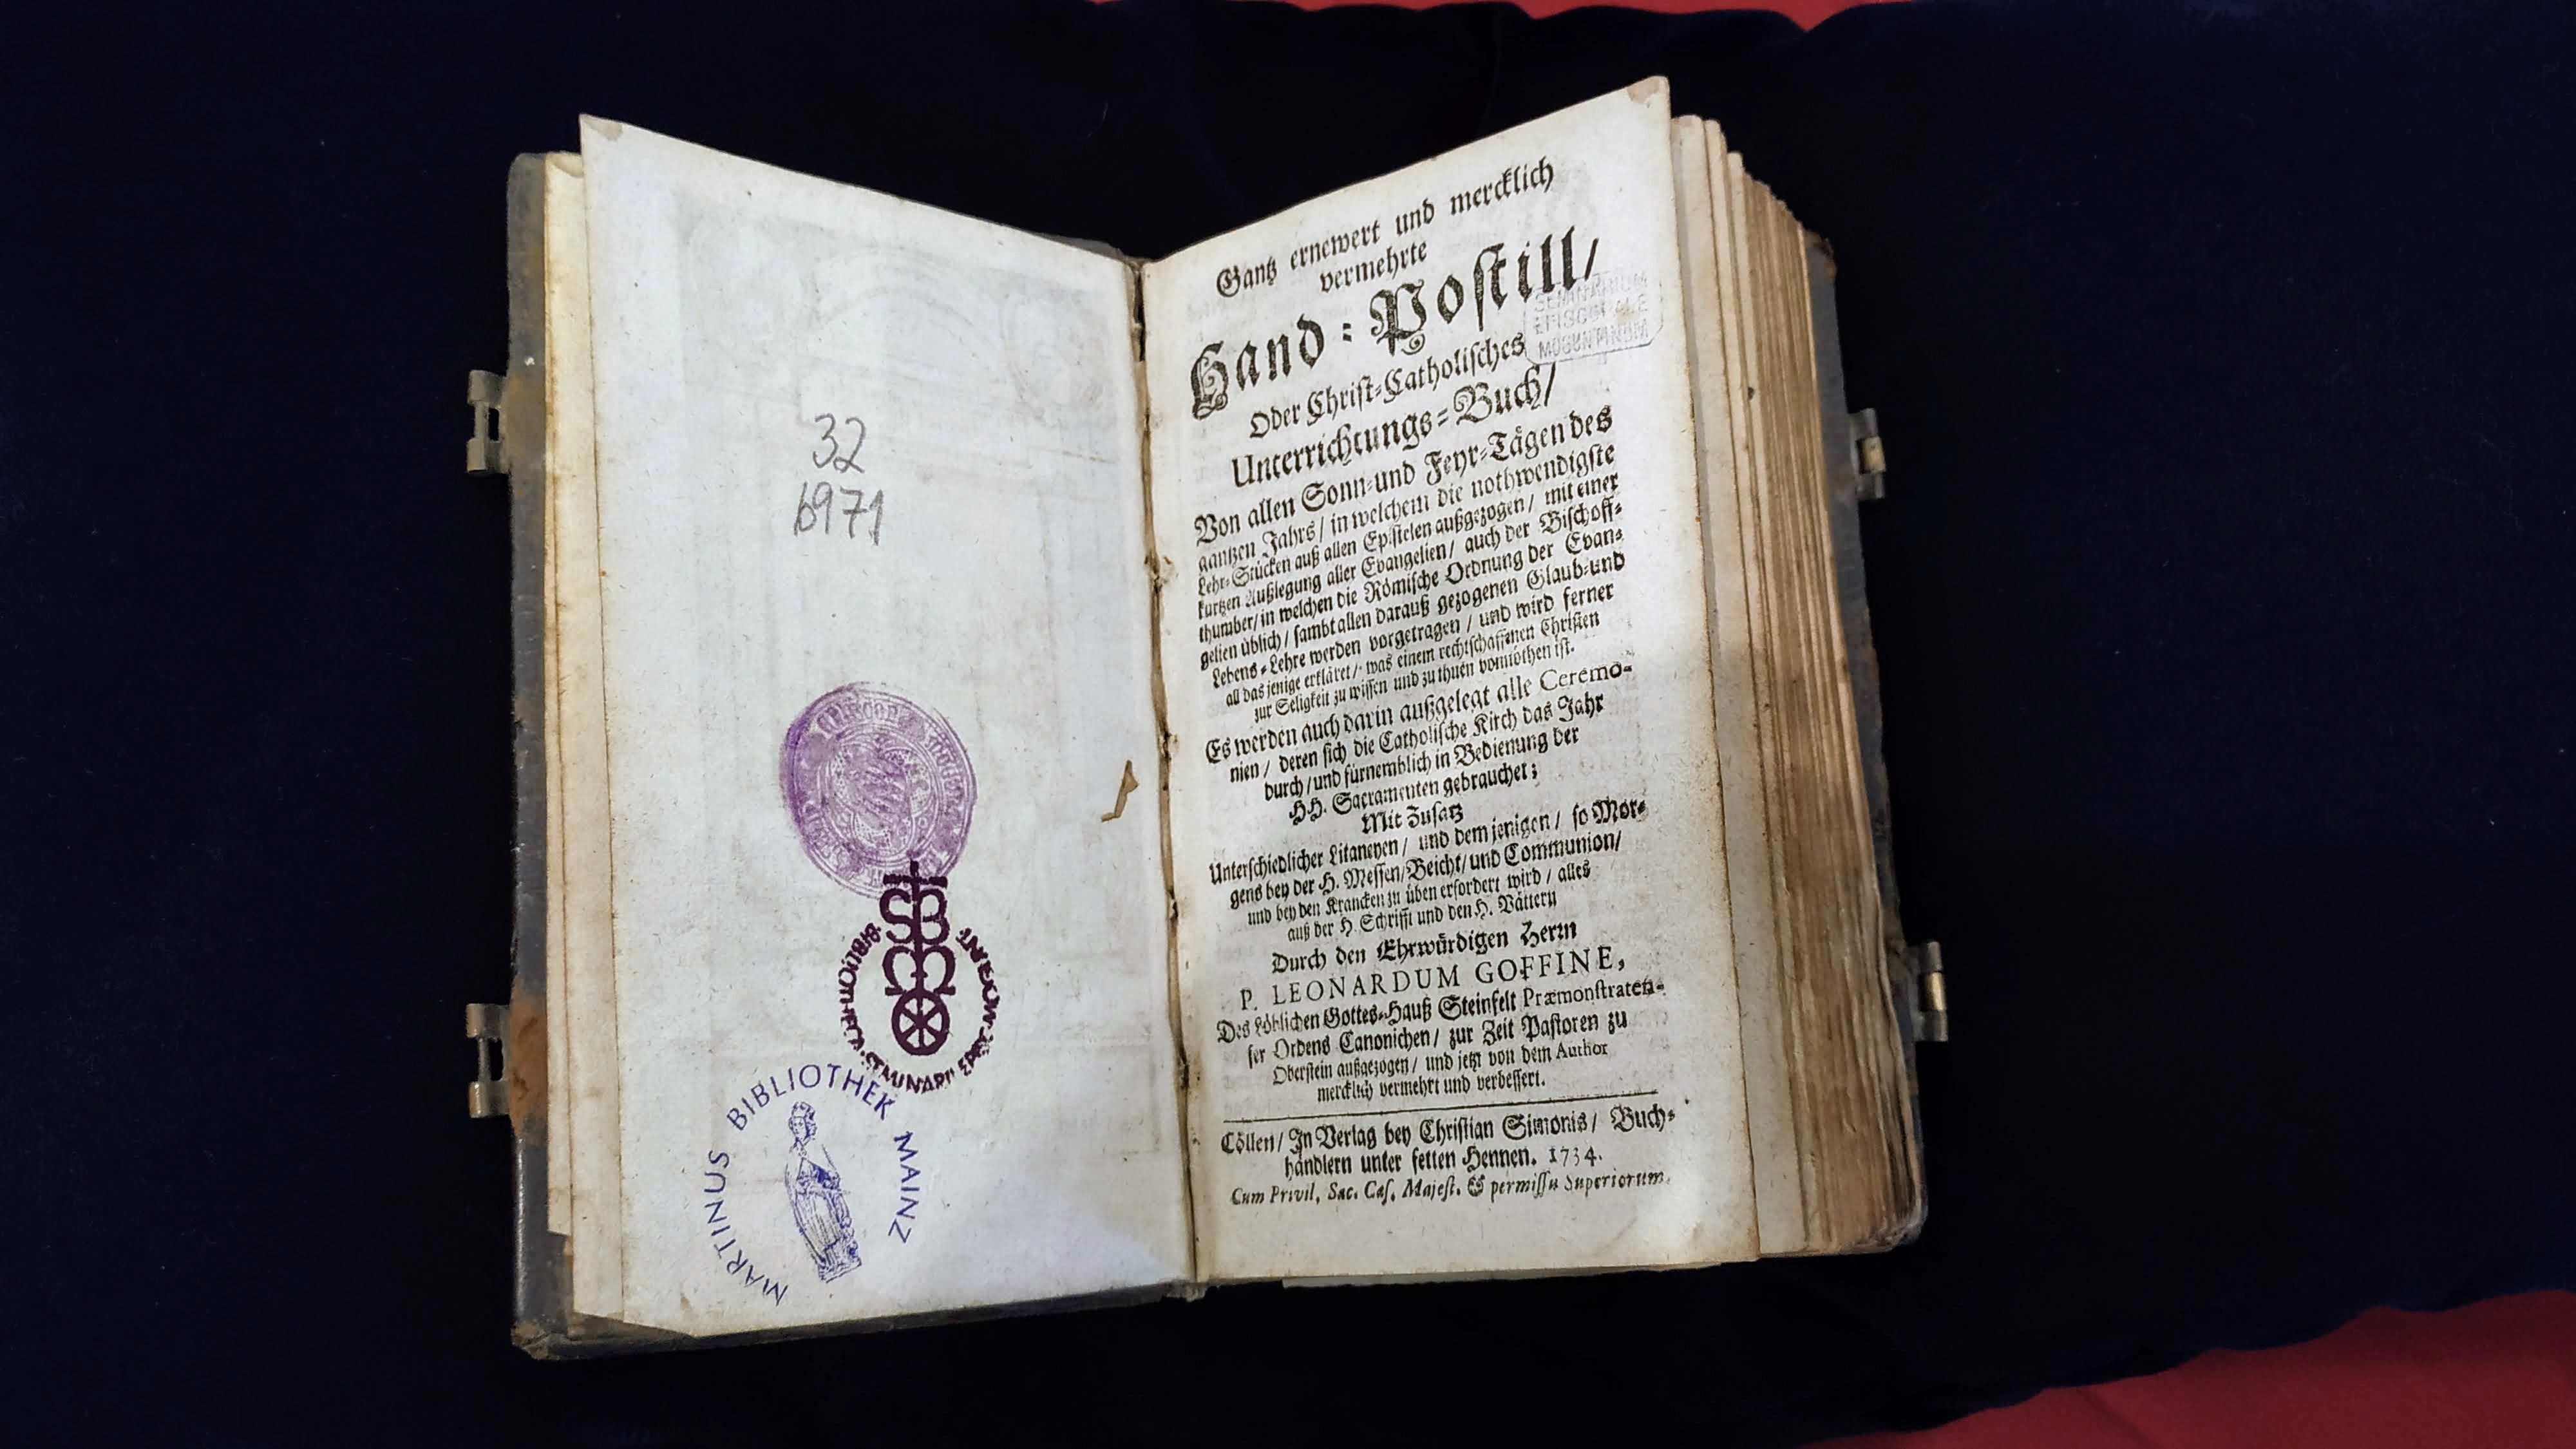 32
6971
BIBLIOTHECA · SEMINARII EPISC. MOGUNT.
SB
M
MARTINUS BIBLIOTHEK MAINZ
Gantz ernewert und mercklich
vermehrte
Hand-Postill/
SEMINARIUM
EPISCOPALE
MOGUNTINUM
Oder Christ-Catholisches
Unterrichtungs-Buch/
Von allen Sonn-und Feyr-Tägen des
gantzen Jahrs/ in welchem die nothwendigste
Lehr-Stücken auß allen Epistelen außgezogen/ mit einer
kurtzen Außlegung aller Evangelien/ auch der Bischoff-
thumber/ in welchen die Römische Ordnung der Evan-
gelien üblich/ sambt allen darauß gezogenen Glaub-und
Lebens-Lehre werden vorgetragen/ und wird ferner
all das jenige erkläret/ was einem rechtschaffenen Christen
zur Seligkeit zu wissen und zu thuen vonnöthen ist.
Es werden auch darin außgelegt alle Ceremo-
nien/ deren sich die Catholische Kirch das Jahr
durch/ und fürnemblich in Bedienung der
HH. Sacramenten gebrauchet;
Mit Zusatz
Unterschiedlicher Litaneyen/ und dem jenigen/ so Mor-
gens bey der H. Messen/ Beicht/ und Communion/
und bey den Krancken zu üben erfordert wird/ alles
auß der H. Schrifft und den H. Vättern
Durch den Ehrwürdigen Herrn
P. LEONARDUM GOFFINE,
Des Löblichen Gottes-Hauß Steinfelt Præmonstraten-
ser Ordens Canonichen/ zur Zeit Pastoren zu
Oberstein außgezogen/ und jetzt von dem Author
mercklich vermehrt und verbessert.
Cöllen/ In Verlag bey Christian Simonis/ Buch-
händlern unter fetten Hennen. 1734.
Cum Privil. Sac. Cæs. Majest. & permissu Superiorum.